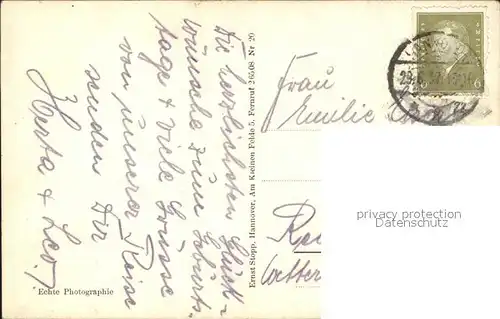 Die herzlichsten Glück-
wünsche zum Geburts-
tage & viele Grüsse
von unserer Reise
senden Dir
Herta & Leo.
Echte Photographie
Ernst Stopp, Hannover, Am Kleinen Felde 5, Fernruf 2 65 08 Nr 29
Frau
Emilie
privacy protection
watermark